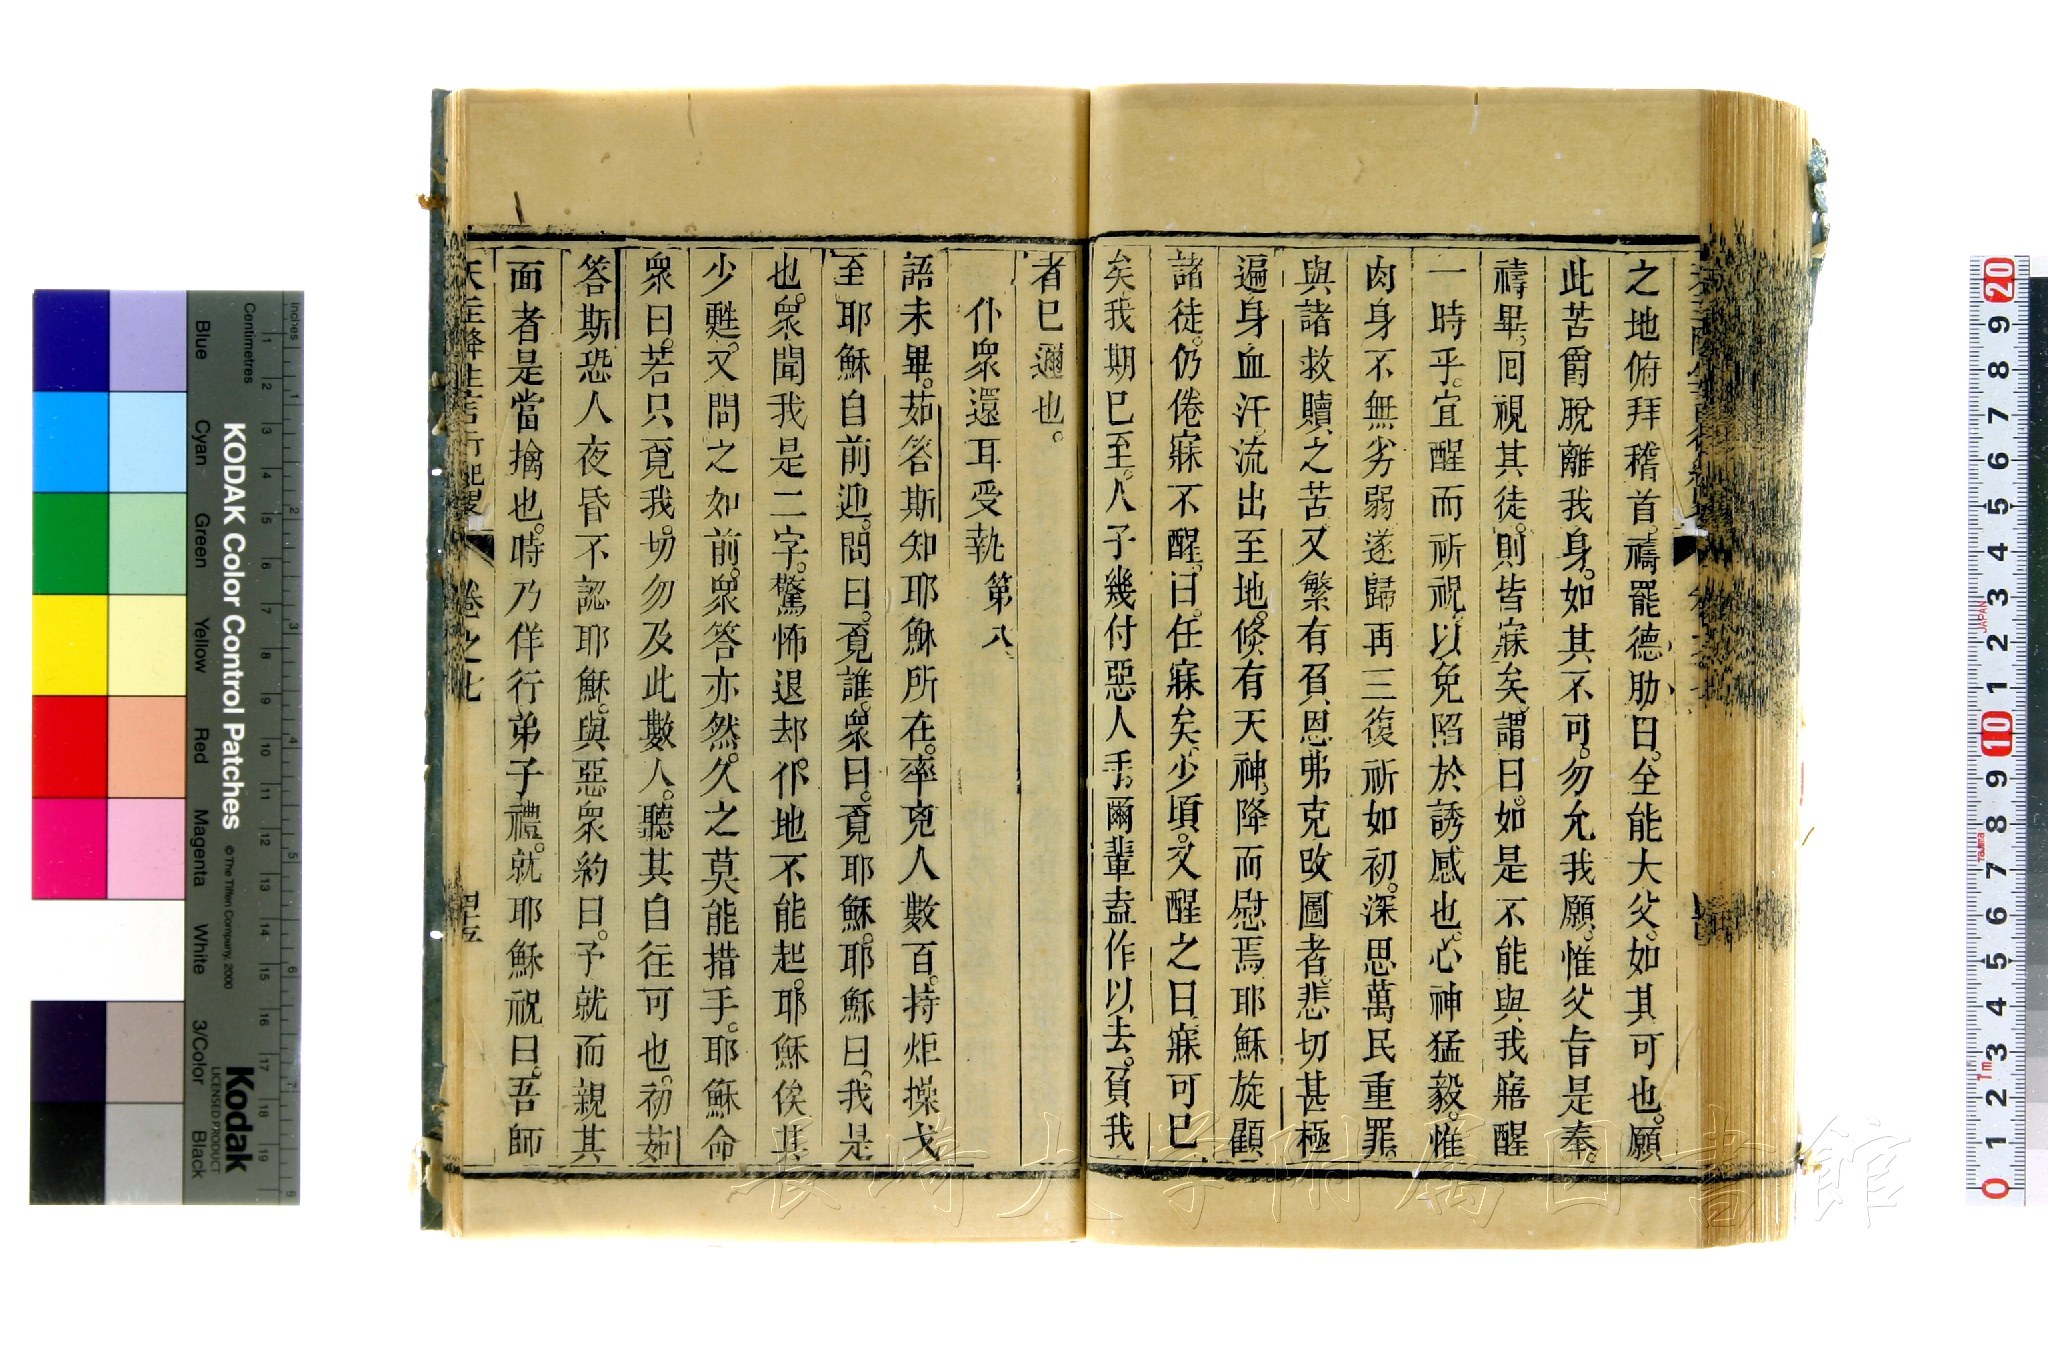 之地俯拜稽首。禱罷德肋曰。全能大父。如其可也。願
此苦爵脫離我身。如其不可。勿允我願。惟父旨是奉。
禱畢。囘視其徒。則皆寐矣。謂曰。如是不能與我寤醒
一時乎。宜醒而祈視。以免陷於誘感也。心神猛毅。惟
肉身不無劣弱遂歸再三復祈如初。深思萬民重罪
與諸救贖之苦又繁有負恩弗克改圖者。悲切甚極
遍身血汗。流出至地。倏有天神。降而慰焉耶穌旋顧
諸徒。仍倦寐不醒。曰。任寐矣。少頃。又醒之曰寐可已
矣我期已至。人子幾付惡人手。爾輩盍作以去。負我
者已邇也。
仆衆還耳受執 第八
語未畢。茹答斯知耶穌所在。率兇人數百。持炬操戈
至耶穌自前迎。問曰。覔誰。衆曰。覔耶穌。耶穌曰。我是
也。衆聞我是二字。驚怖退却。仆地不能起。耶穌俟其
少甦。又問之如前。衆答亦然。久之莫能措手。耶穌命
衆曰。若只覔我。切勿及此數人。聽其自往可也。初茹
答斯恐人夜昏不認耶穌。與惡衆約曰。予就而親其
面者是當擒也。時乃佯行弟子禮。就耶穌祝曰。吾師
天主降生言行紀畧 卷之七 四五
KODAK Color Control Patches
© The Tiffen Company, 2000
Kodak
LICENSED PRODUCT
Inches
Centimetres
Blue
Cyan
Green
Yellow
Red
Magenta
White
3/Color
Black
長崎大学附属図書館
JAPAN
Tajima